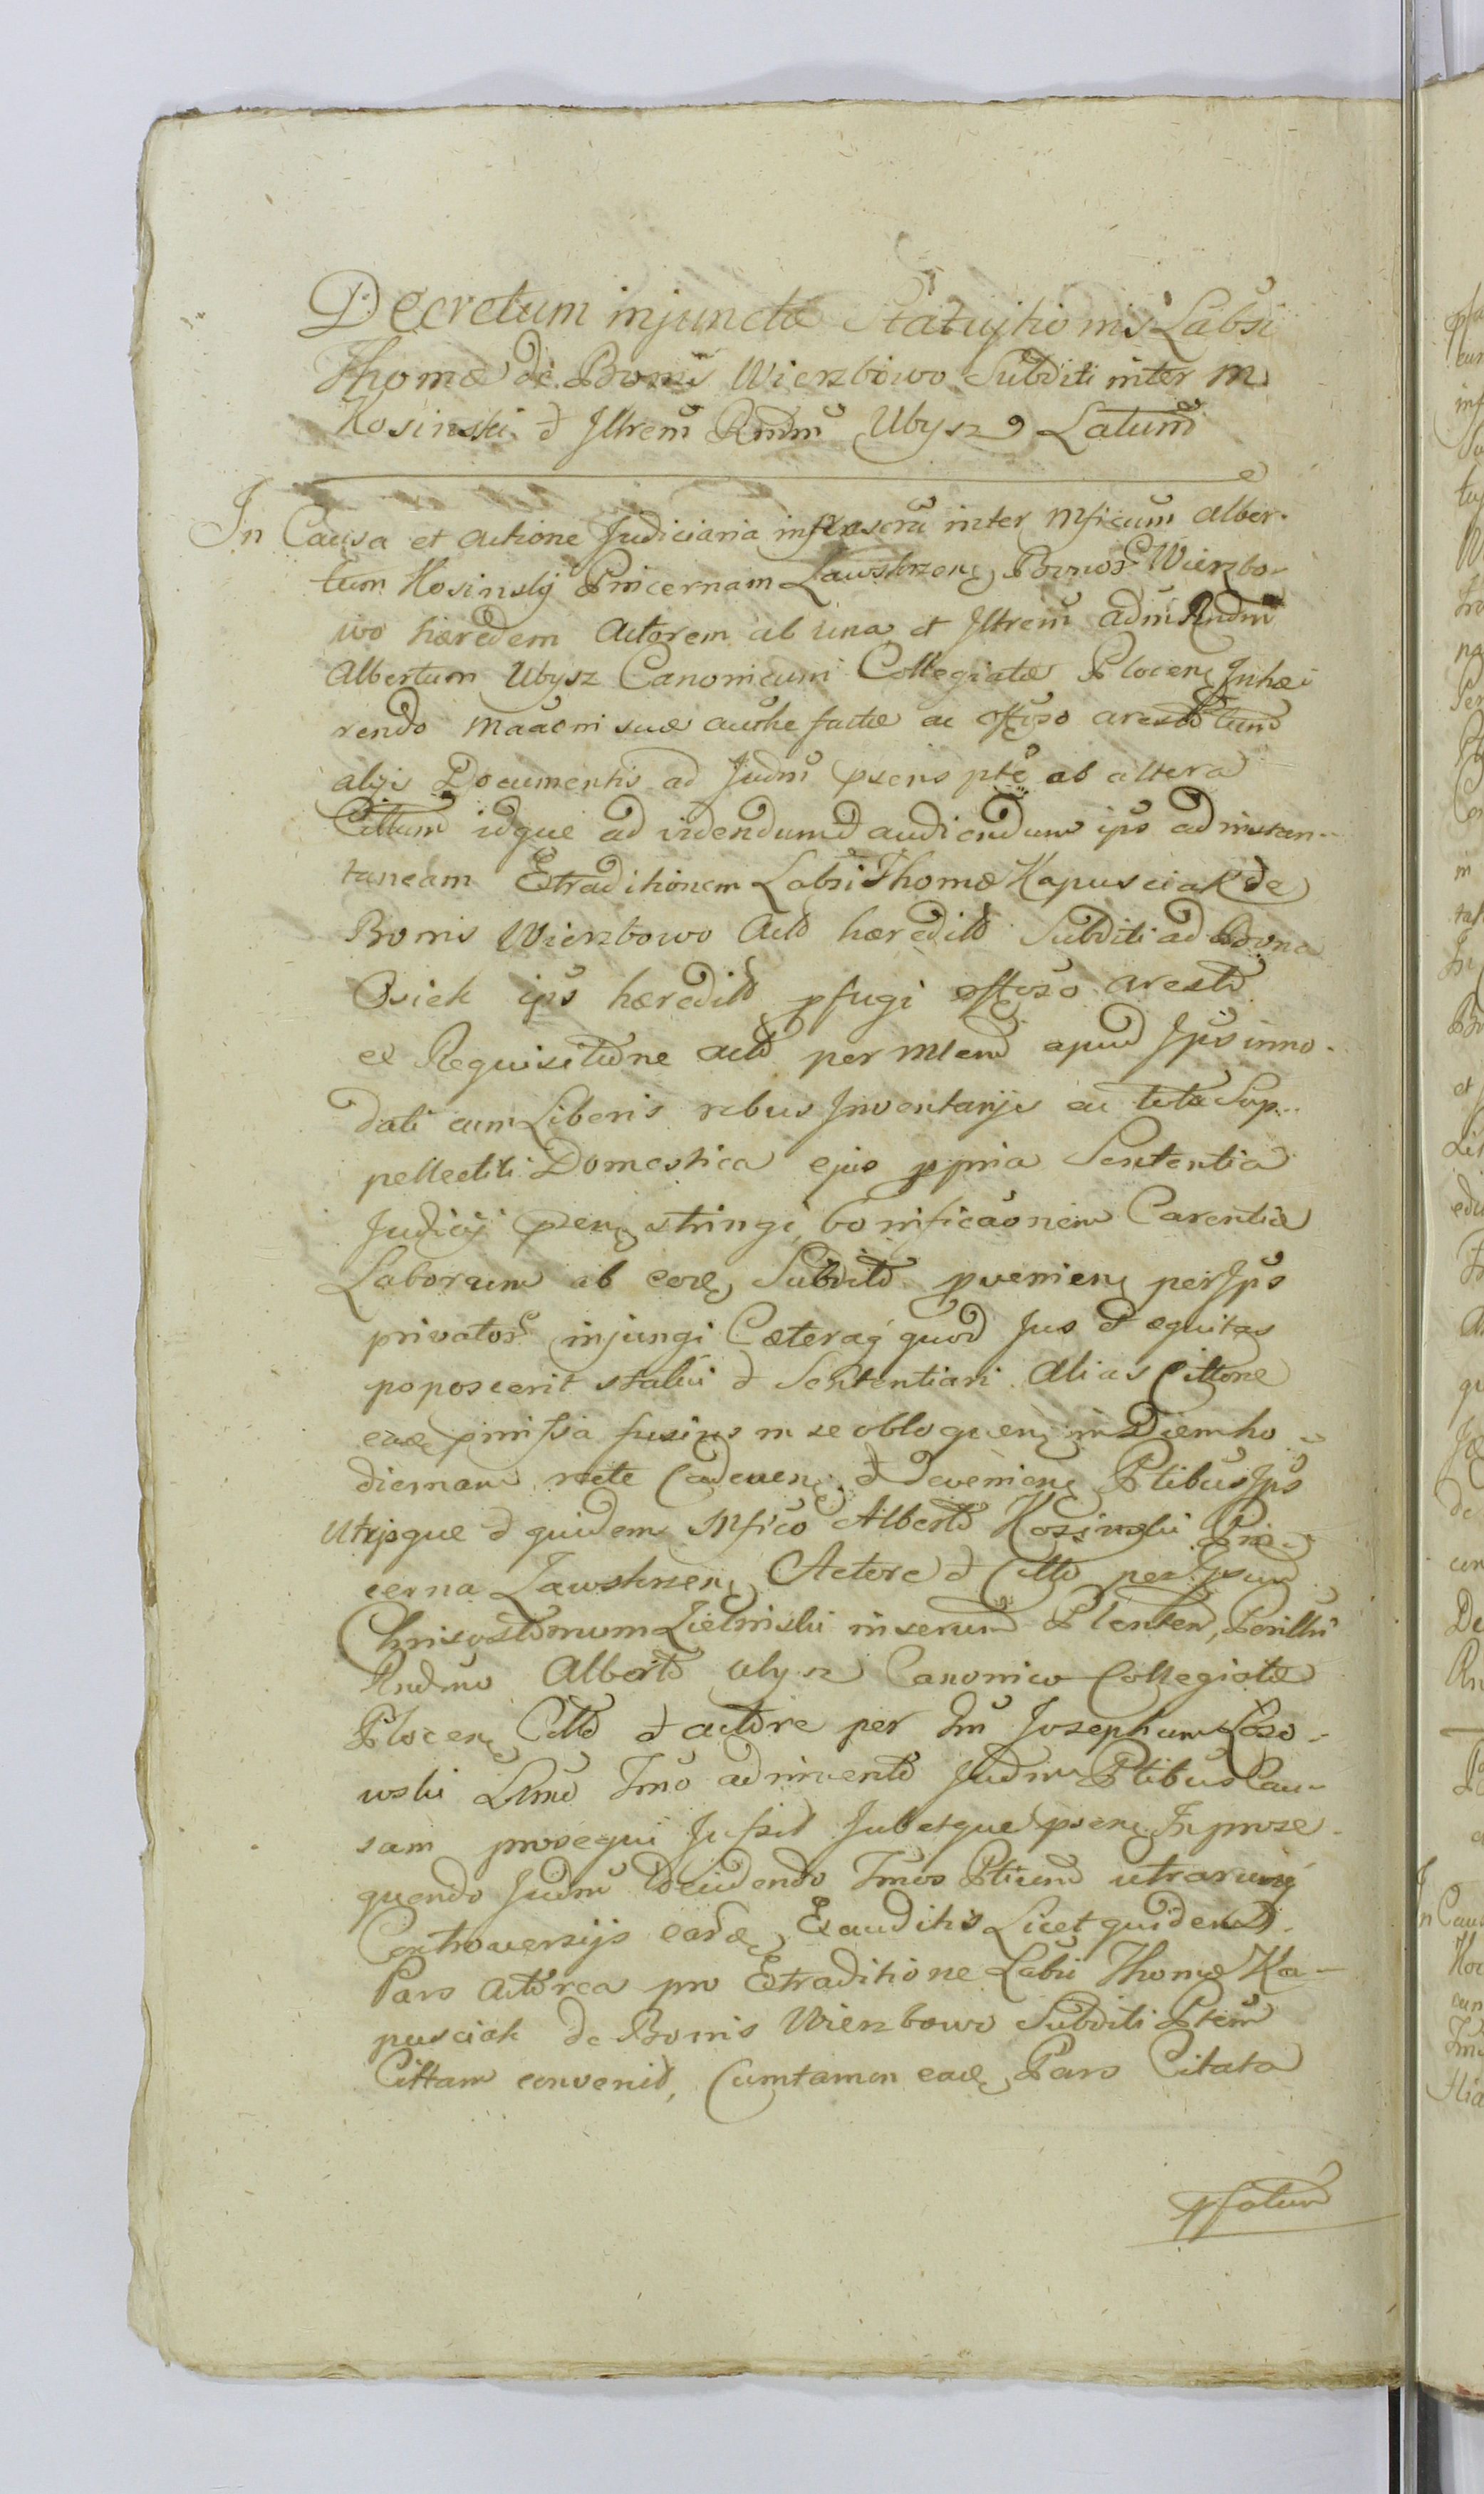 Decretum injunctæ Statujtionis Labsi
Thomæ de Bonis Wierzbowo Subditi inter M
Kosinski et Jltrem Rndm Ubysz Latum
In Causa et actione Judiciaria infrascra inter Mficum Alber-
tum Kosinskj Pincernam Zawskrzen Bonor Wierzbo-
wo hæredem Actorem ab una et Jltrem adm Rndm
Albertum Ubysz Canonicum Collegiatæ Plocen Inhæ
rendo maaoni suæ facte ac offoso aresto tum
alijs Documentis ad Judm psens pte ab altera
Cittum idque ad videndum et audiendum ips ad instan-
taneam Extraditionem Labsi Thomæ Kapusciak de
Bonis Wierzbowo Acto hæredito Subditi ad Bona
Osiek ips hæredito pfugi offoso aresto
ex Requisitione acto per Mlem apud Jps inno-
dati cum Liberis rebus Inventarijs ac tota Sup-
pellectili Domestica ejus ppria Sententia
Judicij psen stringi, bonificaonem Carentiæ
Laborum ab eod Subdito pvenien per Jps
privator injungi Cæteraq quod Jus et æquitas
poposcerit statui et Sententiari Alias Cittone
eade pmissa fusius in se obloquen in Diem ho-
diernam rite Cadeven et devenien Ptibus Jps
Utrisque et quidem Mfico Alberto Kosinski Pin-
cerna Zawskrzen Actore et Citto per Gsum
Chrisostomum Zielinski inserum Plenten, Perillri
Rndmo Alberto Ubysz Canonico Collegiatæ
Plocen Citto et actore per Gm Josephum Loso-
wski Tmo ad invento Judm Ptibus Cau-
sam prosequi Jussit Jubetque psen In prose-
quendo Judm Decidendo Tmos Ptium utrarumq
Controversijs eade Exauditis Licet quidem
Pars Actorea pro Extraditione Labsi Thomæ Ka-
pusciak de Bonis Wierzbowo Subditi Ptem
Cittam convenit, Cum tamen eade Pars Citata
pfatum